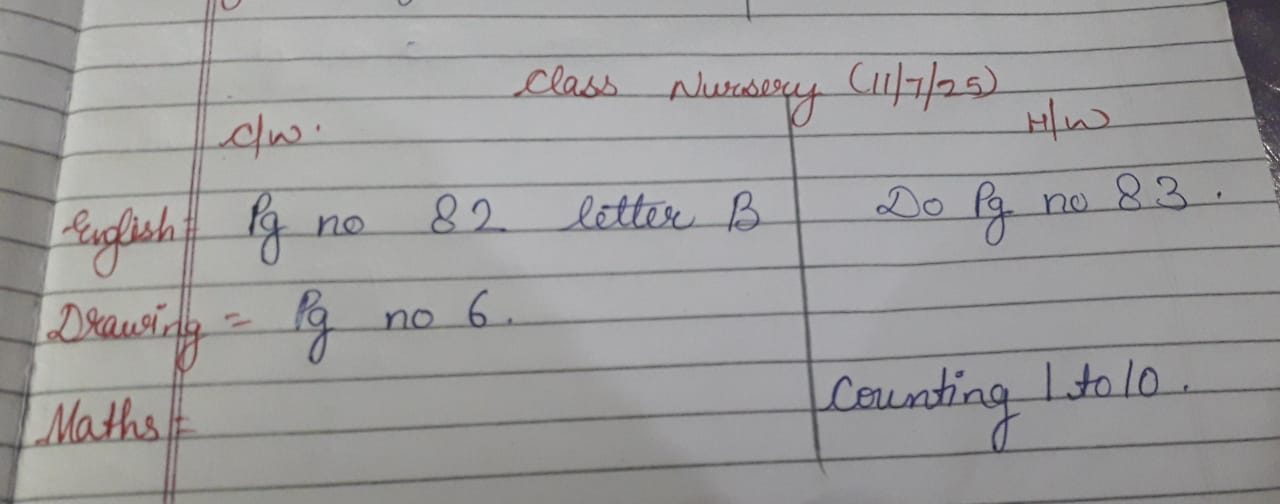 Class Nursery (11/7/25)
C/W. H/W
English = Pg no 82 letter B Do Pg no 83.
Drawing = Pg no 6.
Maths = Counting 1 to 10.